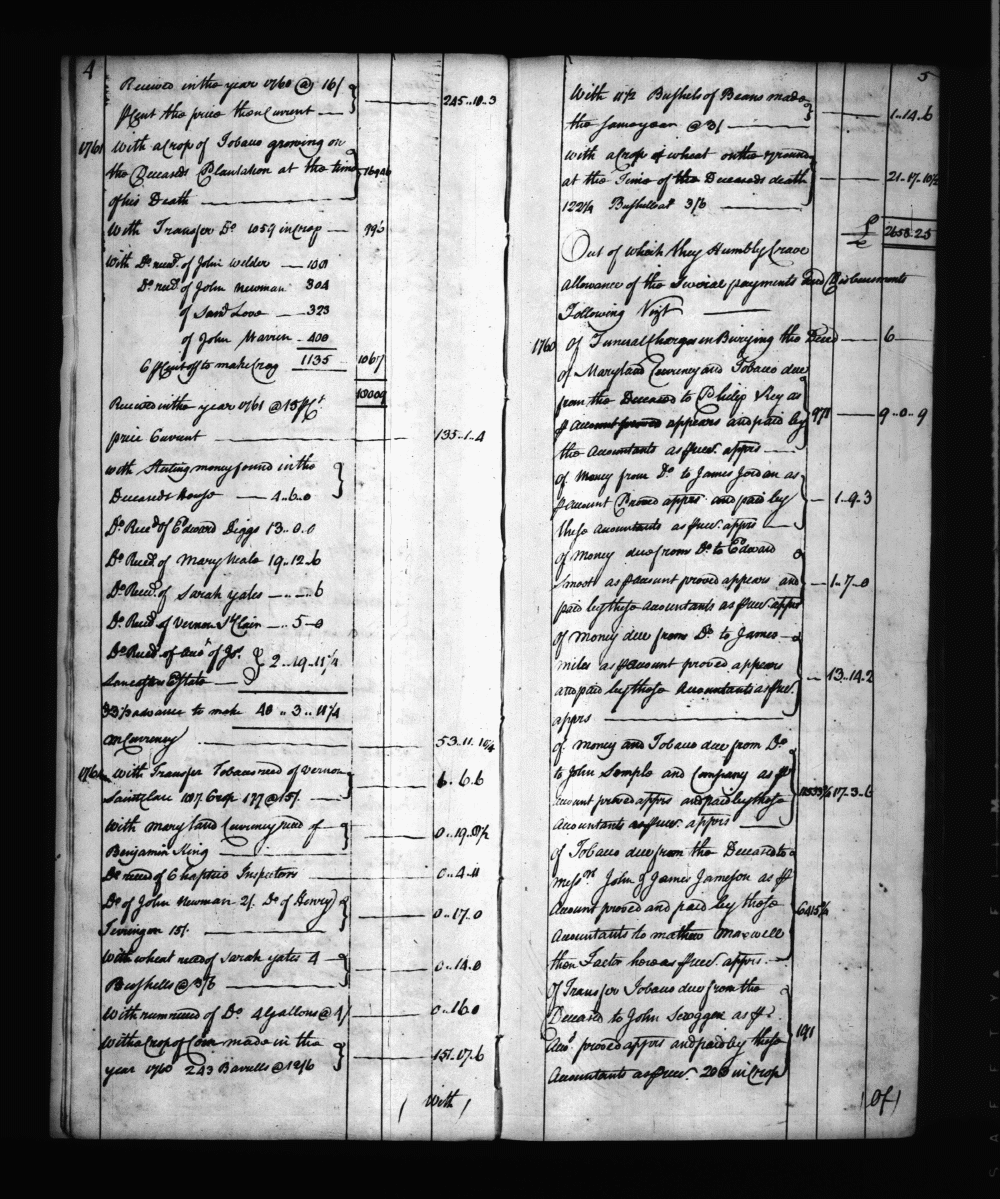 4
Received in the year 1760 @ 16/
⅌ Cent the price then Current 245..10..3
1761 With a Crop of Tobacco growing on
the Deceaseds Plantation at the time
of his Death
With Transfer Do. 1059 in Crop
With Do. recd. of John Welder 100
Do. recd. of John Newman 304
of Saml. Love 323
of John Warren 400
6 ⅌ Cent off to make Crop 1135 1067
Received in the year 1761 @ 15/ ⅌ Ct
price Current 135..1..4
With Sterling money found in the
Deceaseds House 4..6..0
Do. Recd. of Edward Diggs 13..0..0
Do. Recd. of Mary Neale 19..12..6
Do. Recd. of Sarah Yates 6
Do. Recd. of Vernon St Clair 5..0
Do. Recd. of 2..19..11¼
Estate
advance to make 40..3..11¼
in Currency 53..11..10¼
With Transfer Tobacco recd of Vernon 6..6..6
Saintclair 187 Crop 177 @ 15/
With Maryland Currency recd of
Benjamin King
Do. recd of Chaptico Inspectors 0..4..11
Do. of John Newman 2/. Do. of Henry 0..17..0
15/.
With wheat recd of Sarah Yates 4 0..14..0
Bushells @ 3/6
With rum recd of Do. 4 Gallons @ 4/ 0..16..0
With a Crop of Corn made in the
year 1760 243 Barrells @ 12/6 151..17..6
With
5
With 11½ Bushels of Beans made
the same year @ 3/ 1..14..6
With a Crop of wheat on the ground
at the Time of the Deceaseds death 21..17..10½
122¼ Bushells at 3/6
£ 2658.2.5
Out of which they Humbly Crave
Allowance of the Several payments and Disbursements
Following Vizt
1760 Of Funeral Charges in Burying the Decd 6
Of Maryland Currency and Tobacco due
from the Deceased to Philip Key as
⅌ Account proved appears and paid by 971 9..0..9
the Accountants as ⅌ rect. apprs
Of Money from Do. to James Jordan as
⅌ account Proved apprs. and paid by 1..9..3
these Accountants as ⅌ rect. apprs
Of Money due from Do. to Edward
Smoot as ⅌ account proved appears and 1..7..0
paid by these Accountants as ⅌ rect. apprs
Of money due from Do. to James
Miles as ⅌ account proved appears 13..14..2
and paid by these Accountants as ⅌ rect.
apprs
Of Money and Tobacco due from Do.
to John Semple and Company as ⅌ 17..3..6
account proved apprs and paid by these
Accountants as ⅌ rect. apprs
Of Tobacco due from the Deceased to
Messrs. John & James Jameson as ⅌
Account proved and paid by these
Accountants to Mathew Maxwell
then Factor here as ⅌ rect. apprs.
Of Transfer Tobacco due from the
Deceased to John Scoggen as ⅌
Acct. proved apprs and paid by these 191
Accountants as ⅌ rect. 203 in Crop
Of